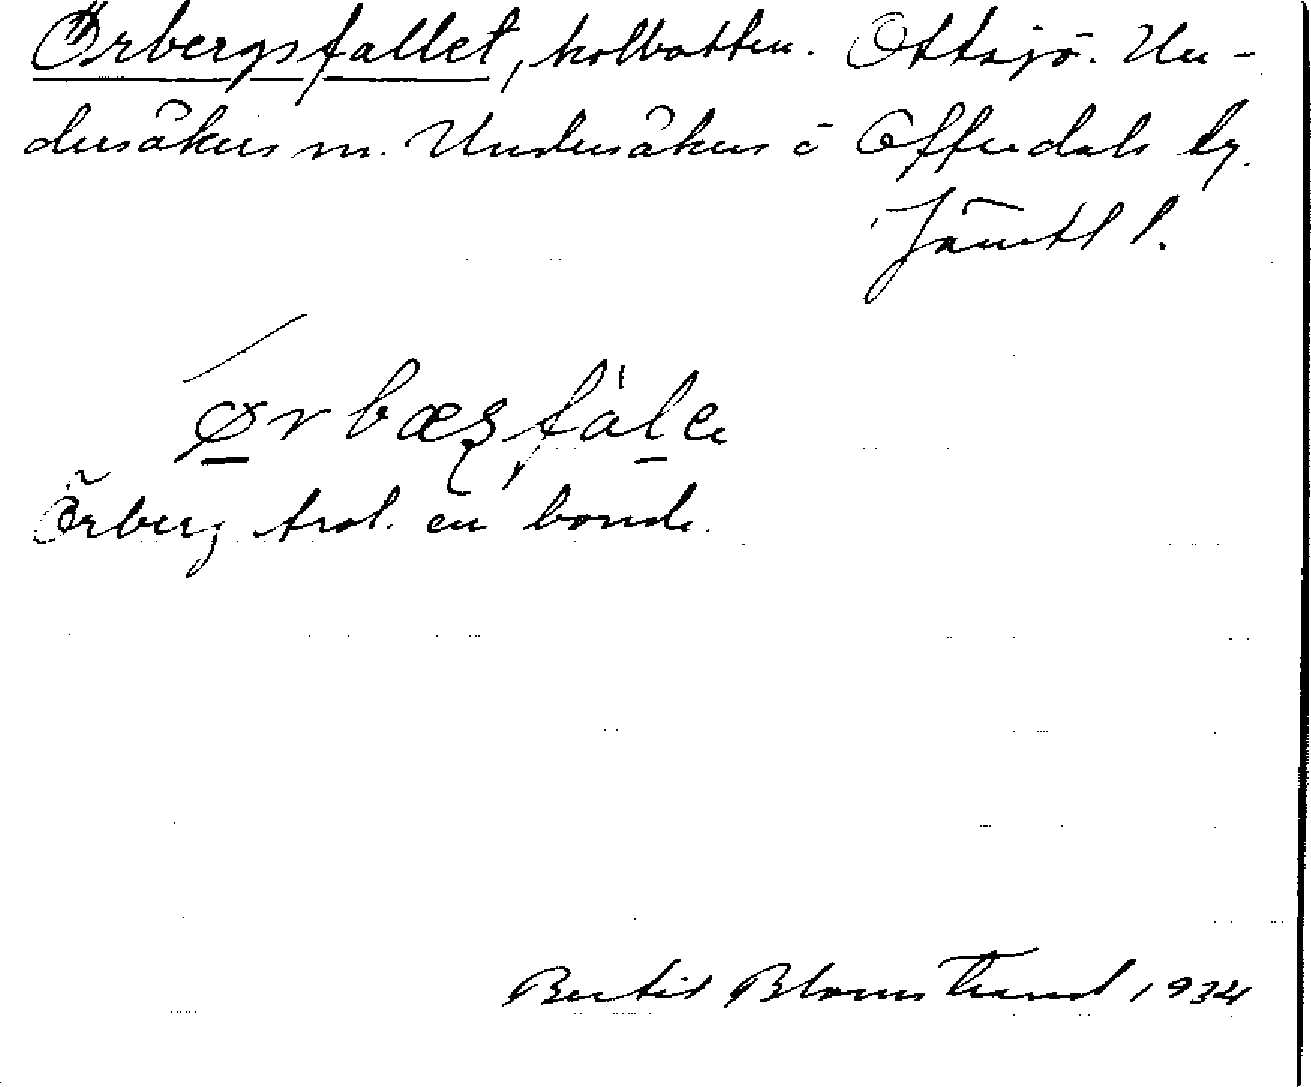 Örbergsfallet, kolbotten. Ottsjö. Un-
dersåkers sn. Undersåkers o Offerdals tg.
Jämtl l.
Örberg trol. en bonde.
Bertil Blomstrand 1934